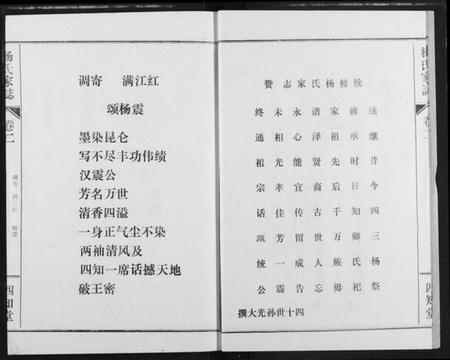 杨氏家誌
卷二
调寄 满江红 杨震
四知堂
调寄 满江红
颂杨震
墨染昆仑
写不尽丰功伟绩
汉震公
芳名万世
清香四溢
一身正气尘不染
两袖清风及
四知一席话撼天地
破王密
续修杨氏家志赞
续修家谱永未终
继承祖泽心相通
昔时先贤能光祖
今日后裔宜孝宗
四知千古传佳话
三卿万世留芳颂
杨氏族人成一统
祭祀毋忘告震公
四十世孙光大撰
杨氏家誌
卷二
四知堂